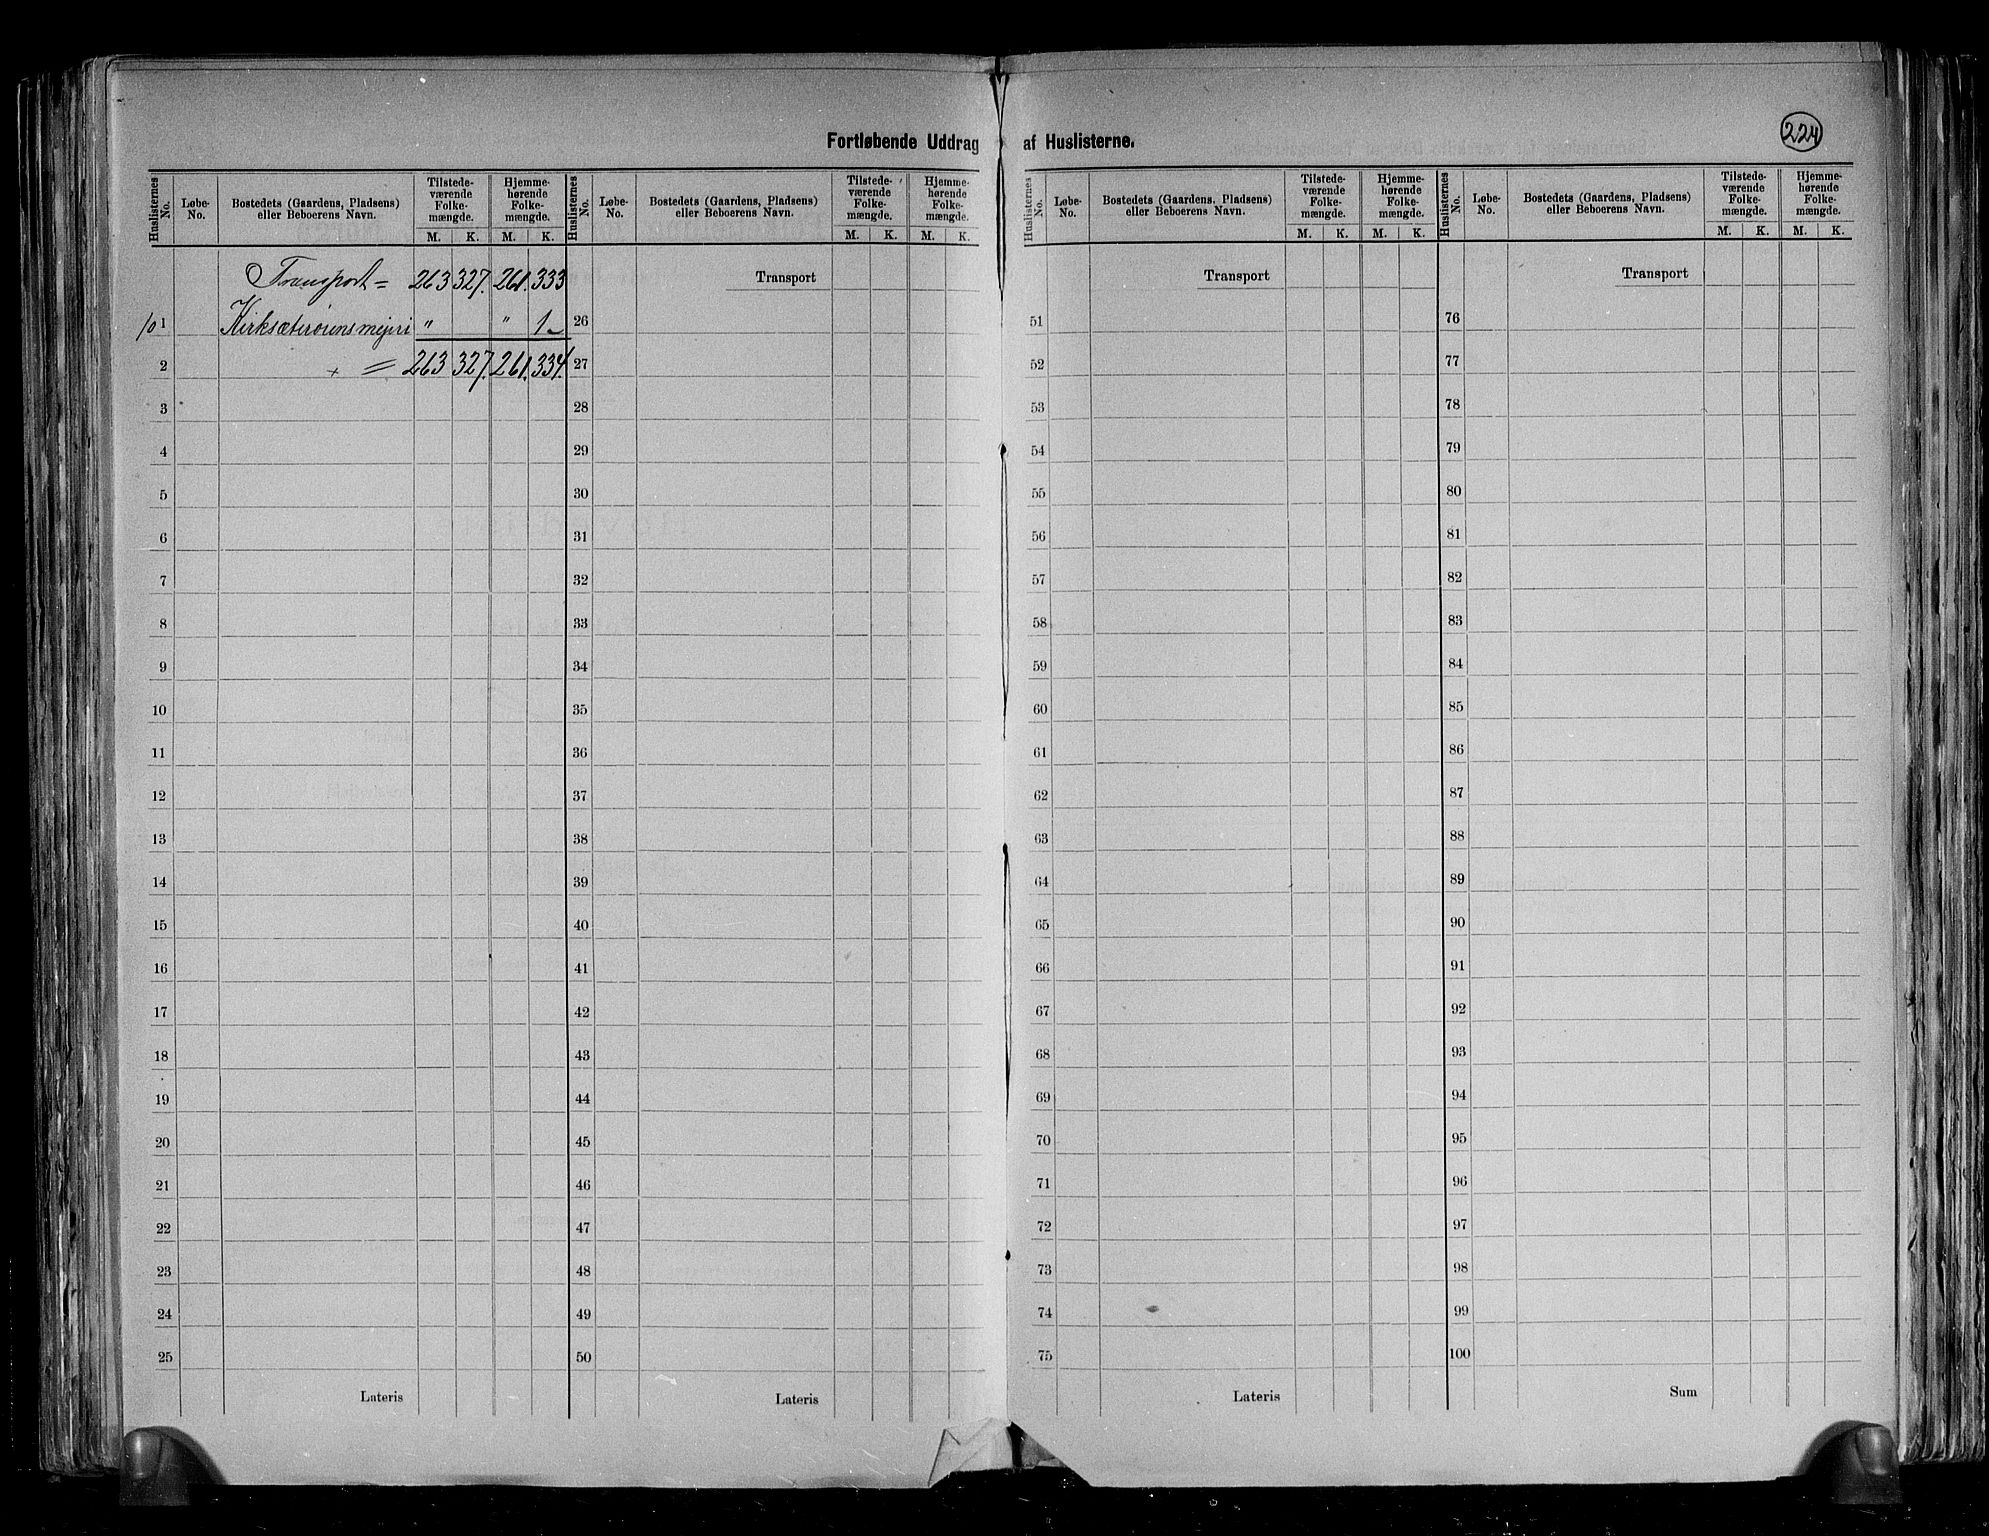 224
Fortløbende Uddrag af Huslisterne.
Huslisternes No. Løbe-No. Bostedets (Gaardens, Pladsens) eller Beboerens Navn. Tilstede-værende Folke-mængde. M. K. Hjemme-hørende Folke-mængde. M. K.
Transport = 263 327. 261. 333
101 Kirksæterørens mejeri " " 1
2 " = 263 327. 261. 334.
3
4
5
6
7
8
9
10
11
12
13
14
15
16
17
18
19
20
21
22
23
24
25
Lateris
Huslisternes No. Løbe-No. Bostedets (Gaardens, Pladsens) eller Beboerens Navn. Tilstede-værende Folke-mængde. M. K. Hjemme-hørende Folke-mængde. M. K.
Transport
26
27
28
29
30
31
32
33
34
35
36
37
38
39
40
41
42
43
44
45
46
47
48
49
50
Lateris
Huslisternes No. Løbe-No. Bostedets (Gaardens, Pladsens) eller Beboerens Navn. Tilstede-værende Folke-mængde. M. K. Hjemme-hørende Folke-mængde. M. K.
Transport
51
52
53
54
55
56
57
58
59
60
61
62
63
64
65
66
67
68
69
70
71
72
73
74
75
Lateris
Huslisternes No. Løbe-No. Bostedets (Gaardens, Pladsens) eller Beboerens Navn. Tilstede-værende Folke-mængde. M. K. Hjemme-hørende Folke-mængde. M. K.
Transport
76
77
78
79
80
81
82
83
84
85
86
87
88
89
90
91
92
93
94
95
96
97
98
99
100
Sum